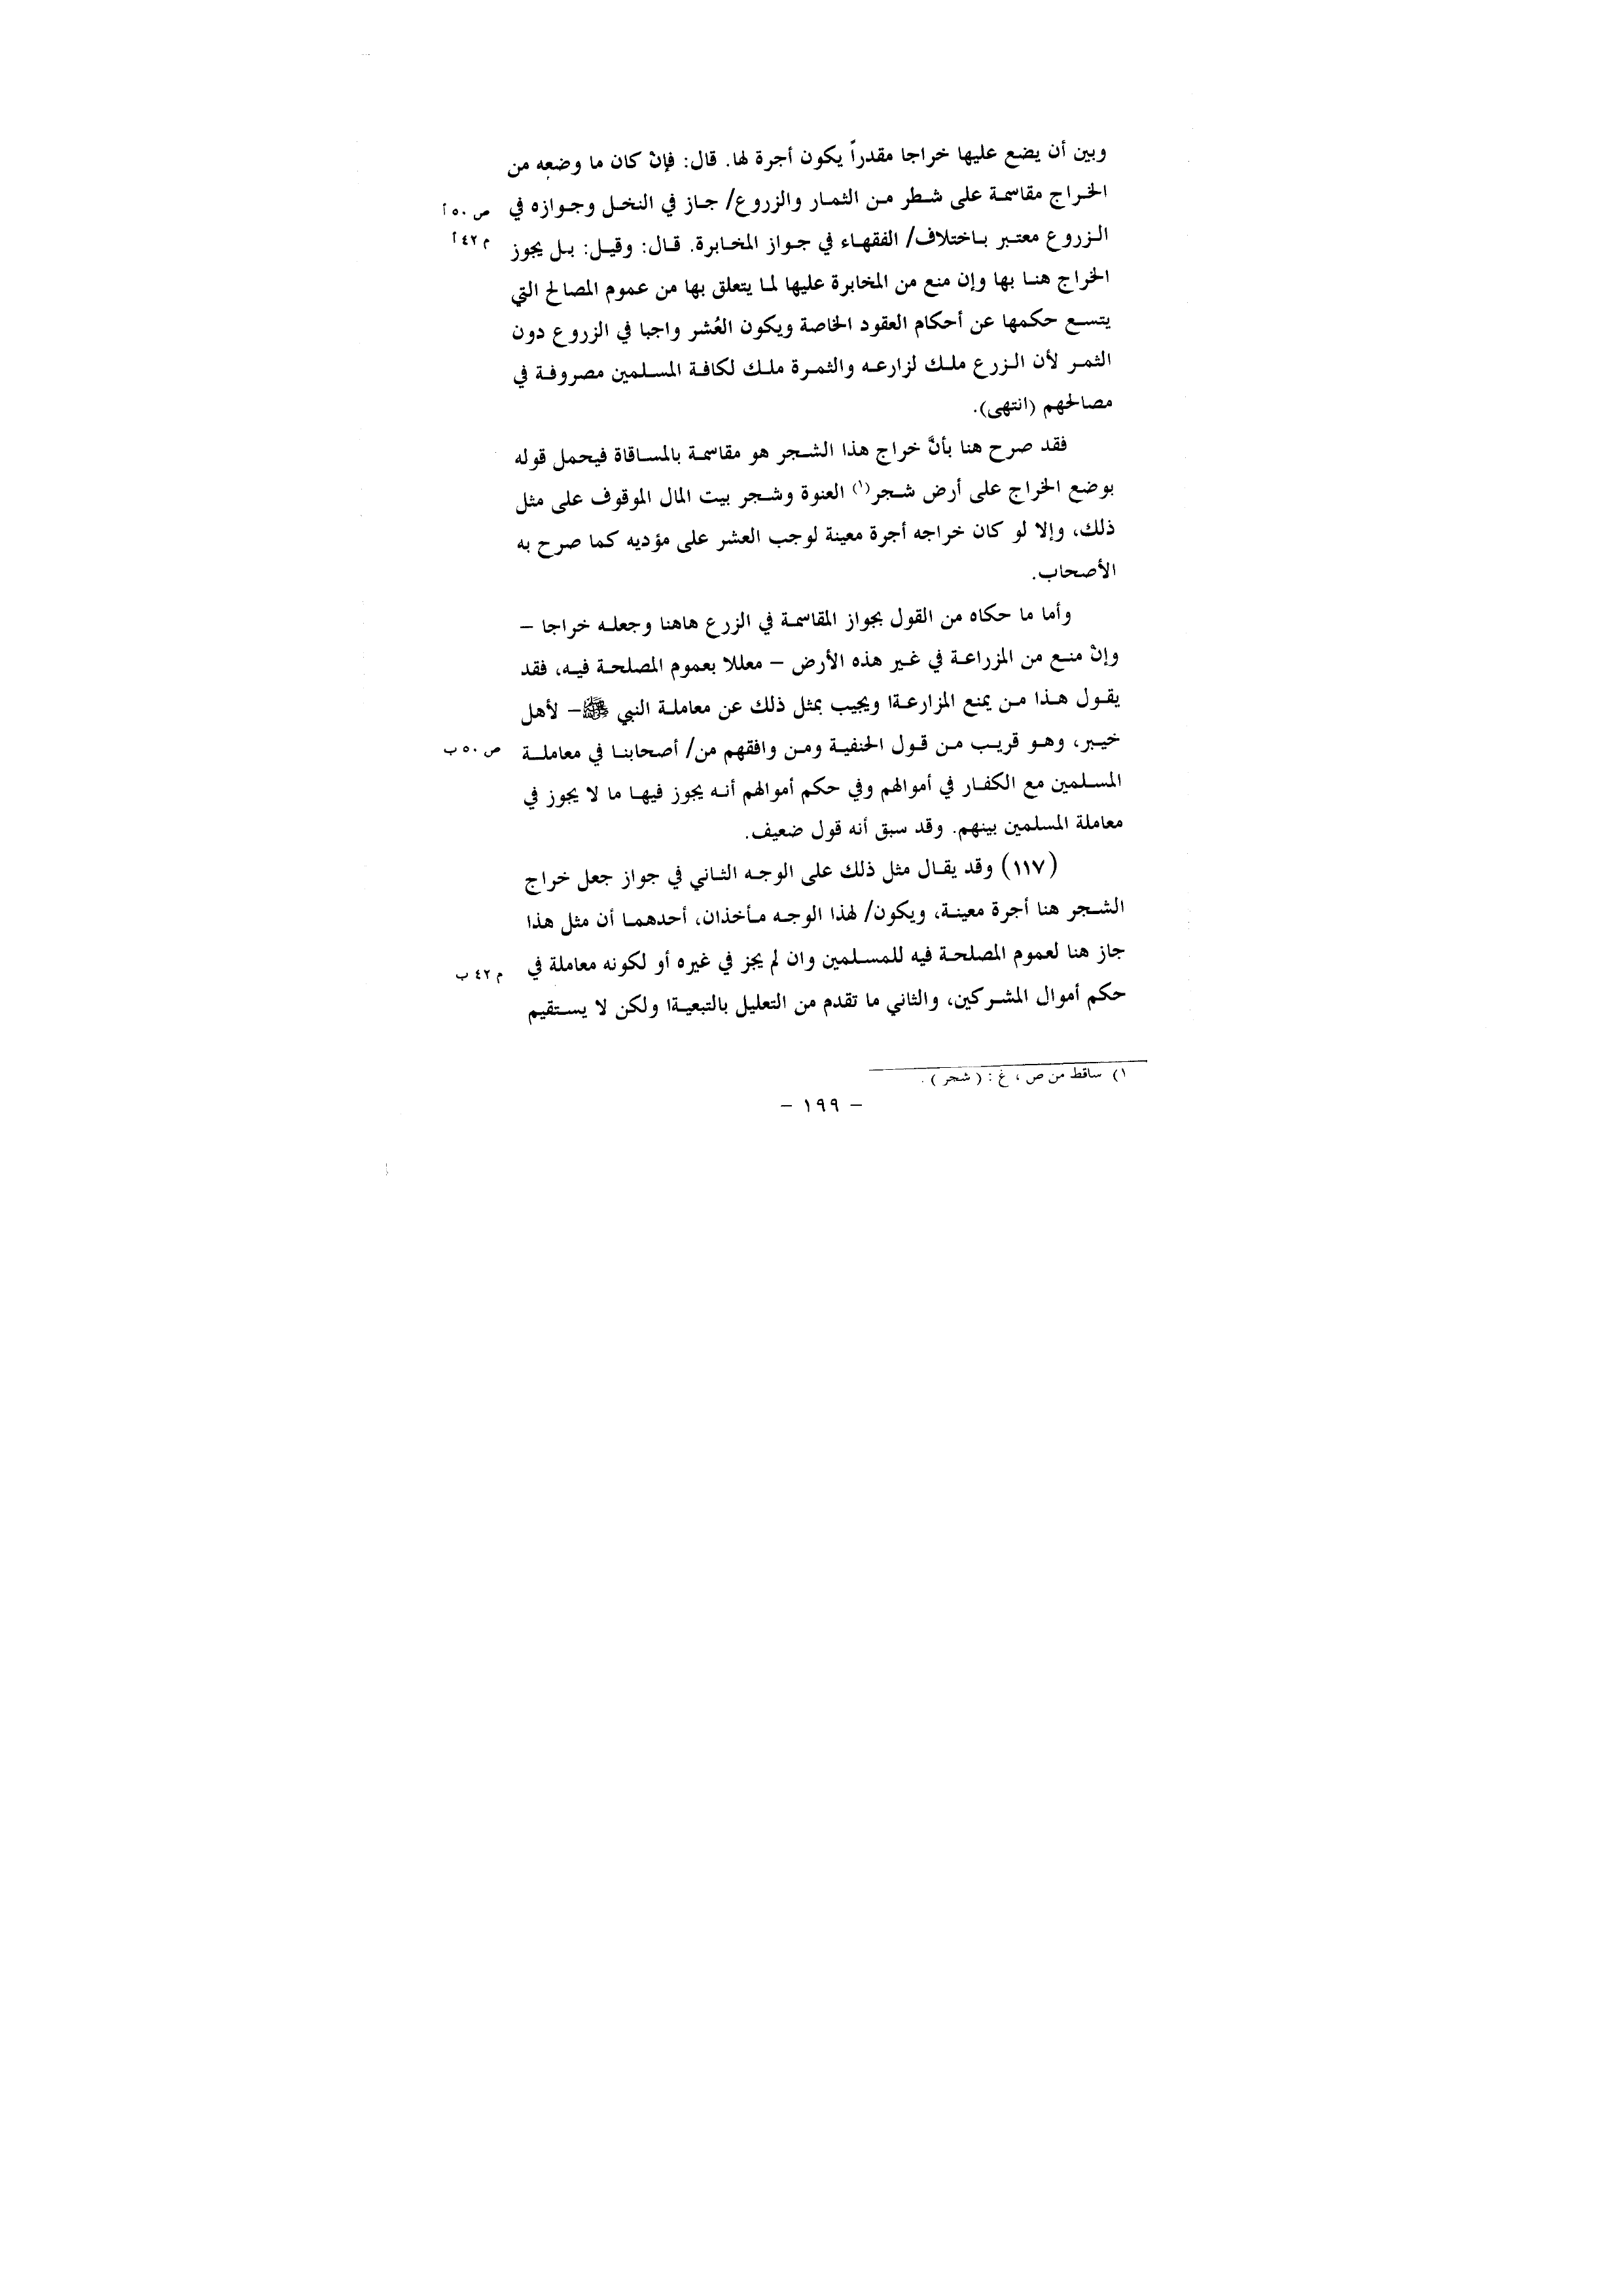 وبين أن يضع عليها خراجا مقدراً يكون أجرة لها. قال: فإنْ كان ما وضعه من
الخراج مقاسمة على شطر من الثمار والزروع/ جاز في النخل وجوازه في ص ٥٠ أ
الزروع معتبر باختلاف/ الفقهاء في جواز المخابرة. قال: وقيل: بل يجوز م ٤٢ أ
الخراج هنا بها وإن منع من المخابرة عليها لما يتعلق بها من عموم المصالح التي
يتسع حكمها عن أحكام العقود الخاصة ويكون العُشر واجبا في الزروع دون
الثمر لأن الزرع ملك لزارعه والثمرة ملك لكافة المسلمين مصروفة في
مصالحهم (انتهى).
فقد صرح هنا بأنَّ خراج هذا الشجر هو مقاسمة بالمساقاة فيحمل قوله
بوضع الخراج على أرض شجر(١) العنوة وشجر بيت المال الموقوف على مثل
ذلك، وإلا لو كان خراجه أجرة معينة لوجب العشر على مؤديه كما صرح به
الأصحاب.
وأما ما حكاه من القول بجواز المقاسمة في الزرع هاهنا وجعله خراجا –
وإنْ منع من المزراعة في غير هذه الأرض – معللا بعموم المصلحة فيه، فقد
يقول هذا من يمنع المزارعة! ويجيب بمثل ذلك عن معاملة النبي ﷺ– لأهل
خيبر، وهو قريب من قول الحنفية ومن وافقهم من/ أصحابنا في معاملة ص ٥٠ ب
المسلمين مع الكفار في أموالهم وفي حكم أموالهم أنه يجوز فيها ما لا يجوز في
معاملة المسلمين بينهم. وقد سبق أنه قول ضعيف.
(١١٧) وقد يقال مثل ذلك على الوجه الثاني في جواز جعل خراج
الشجر هنا أجرة معينة، ويكون/ لهذا الوجه مأخذان، أحدهما أن مثل هذا
جاز هنا لعموم المصلحة فيه للمسلمين وان لم يجز في غيره أو لكونه معاملة في م ٤٢ ب
حكم أموال المشركين، والثاني ما تقدم من التعليل بالتبعية! ولكن لا يستقيم
١) ساقط من ص ، غ : ( شجر ) .
– ١٩٩ –